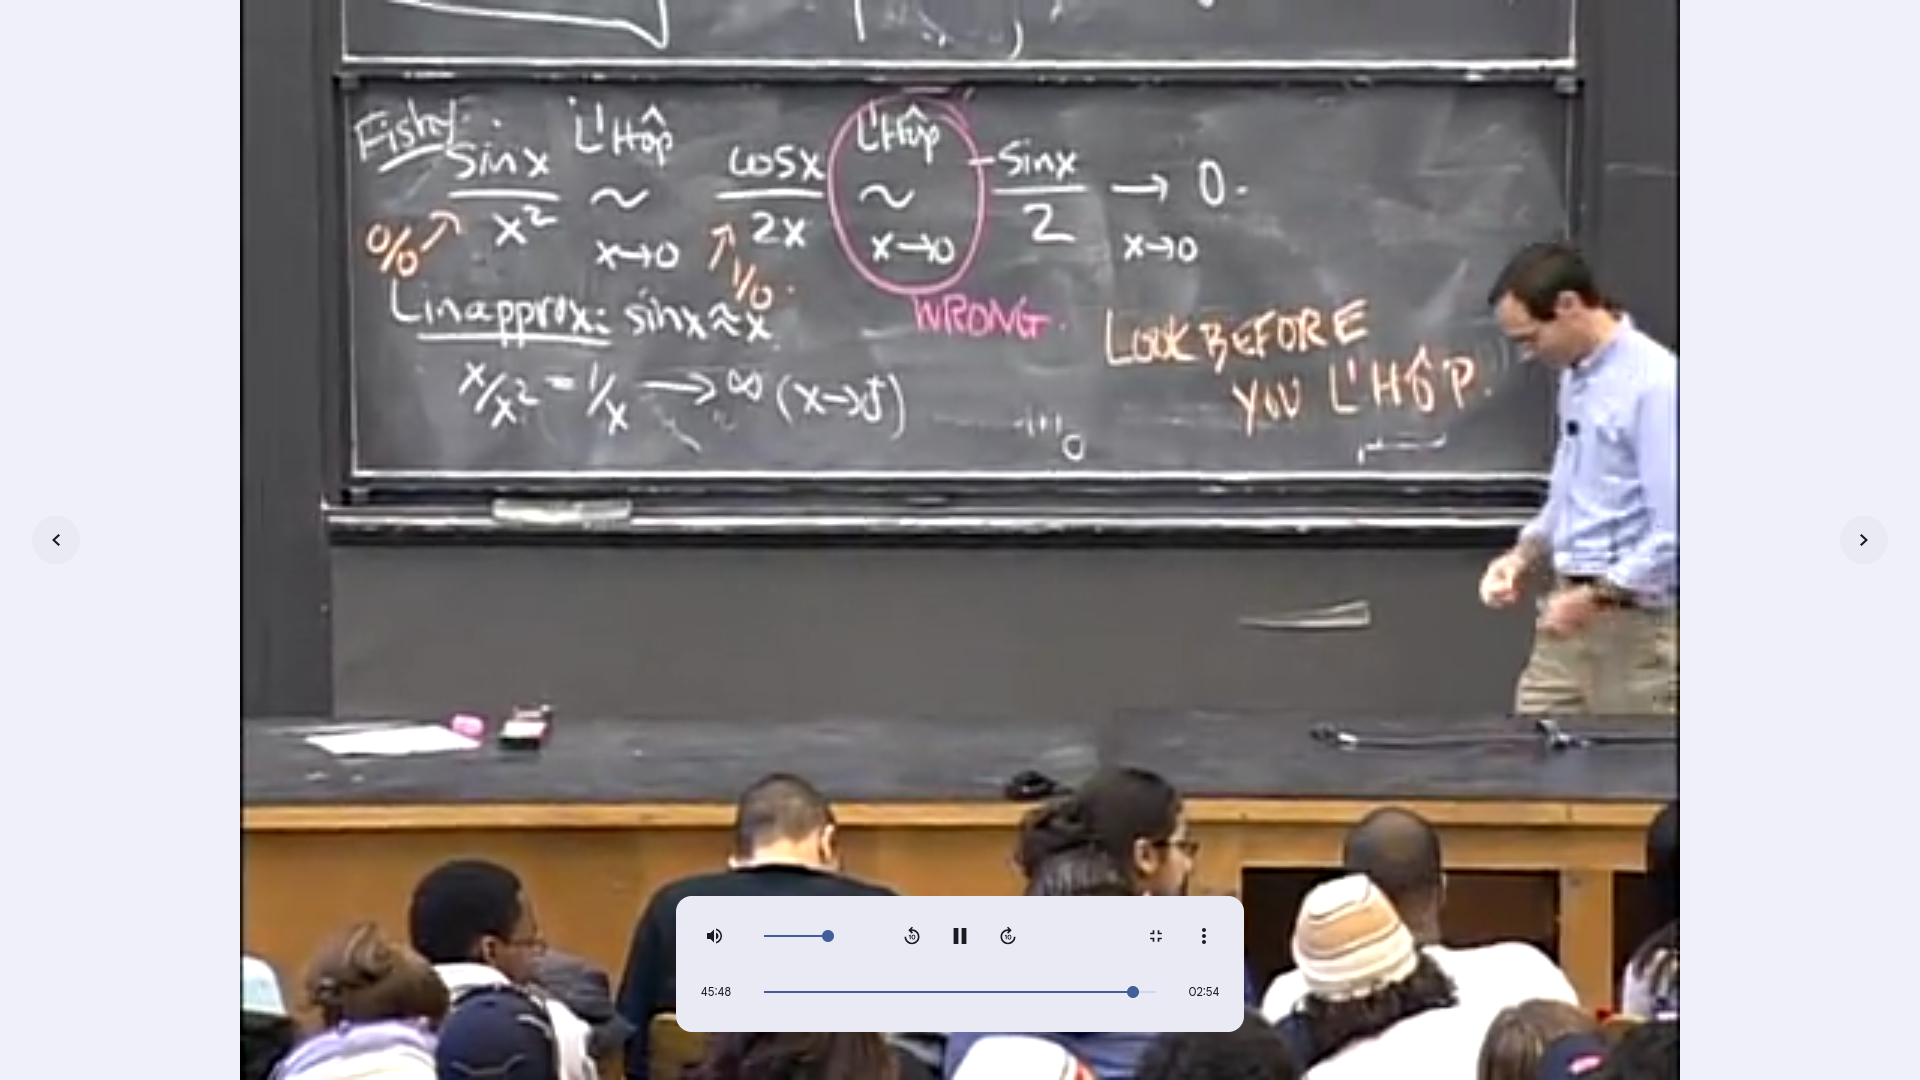 Fishy:
sin x / x² L'Hôp ~ x→0 cosx / 2x L'Hôp ~ x→0 -sinx / 2 → 0. x→0
0/0 1/0
WRONG.
Lin approx: sinx ≈ x
x/x² = 1/x → ∞ (x→0⁺)
LOOK BEFORE
YOU L'HÔP.
45:48 02:54